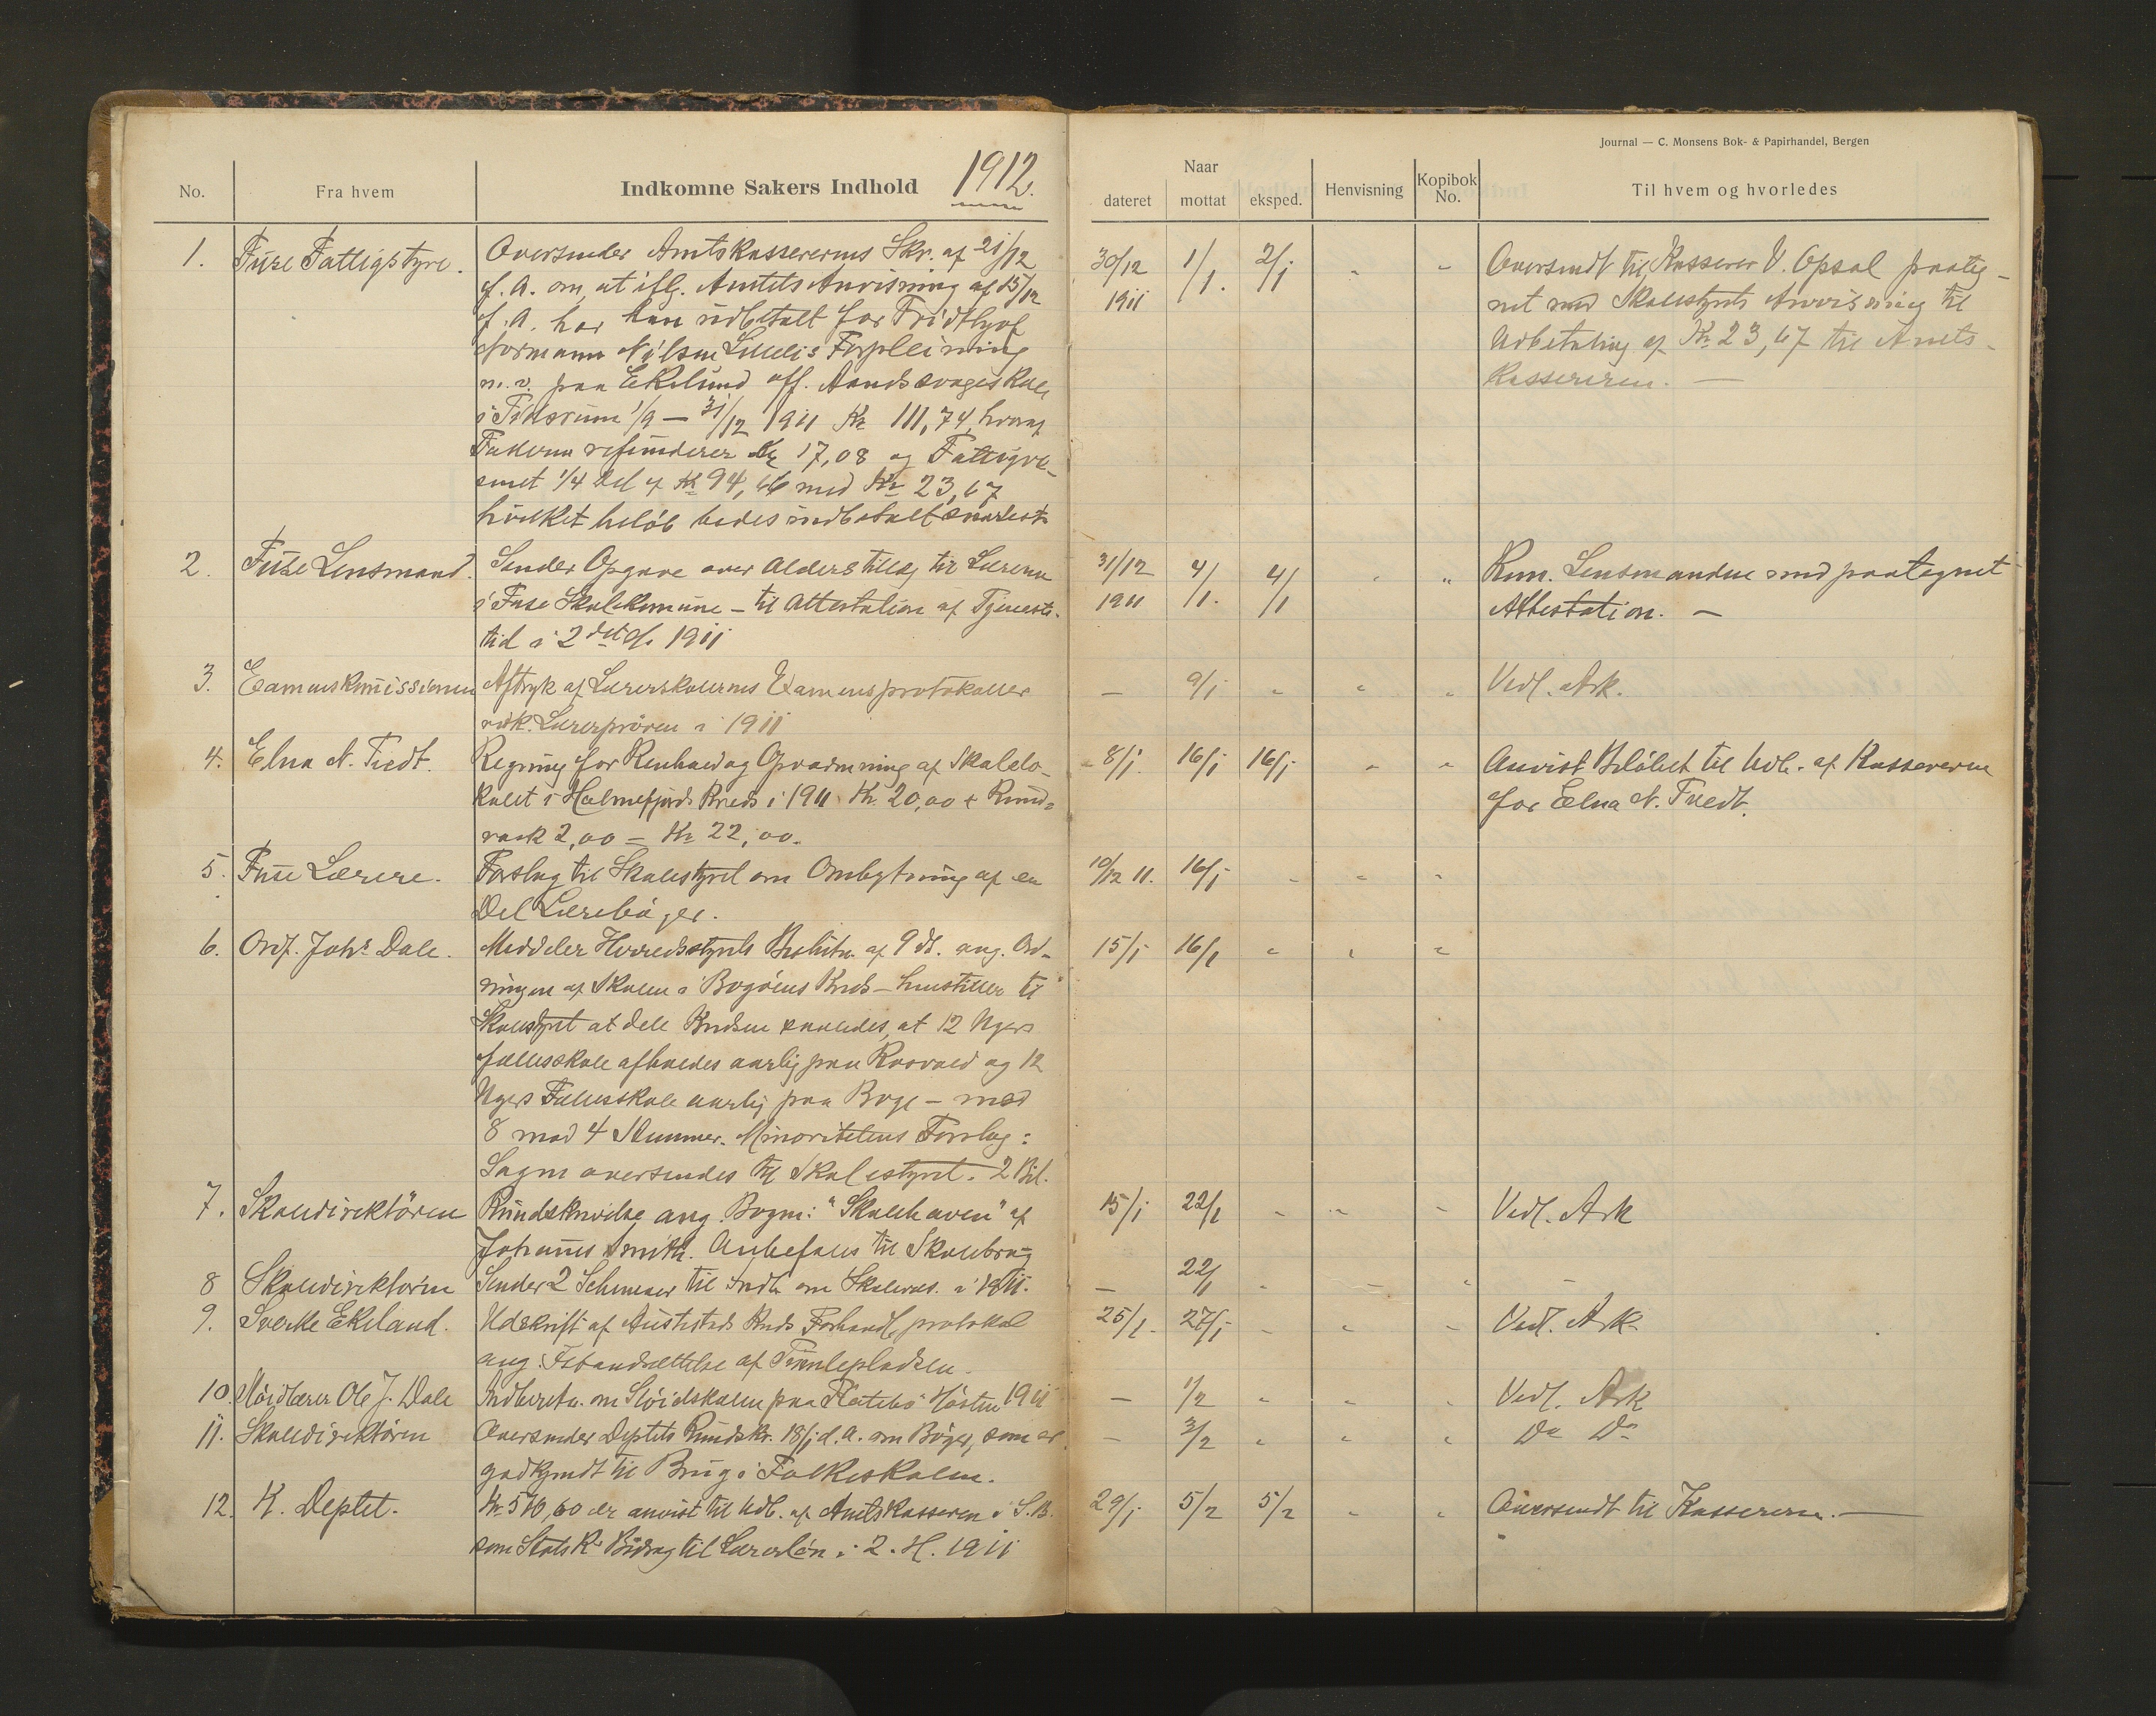 Journal — C. Monsens Bok- & Papirhandel, Bergen
No. Fra hvem Indkomne Sakers Indhold 1912.
Naar
dateret mottat eksped. Henvisning Kopibok No. Til hvem og hvorledes
1. Fuse Fattigstyre. Oversender Amtskassererens Skr. af 21/12 30/12 1/1. 2/1 Oversendt til Kasserer V. Opsal paateg-
f. A. om, at iflg. Amtets Anvisning af 15/12 1911 net med Skolestyrets Anvisning til
f. A. har han udbetalt for Fridthjof Udbetaling af Kr 23,67 til Amts-
Normann Nilsen Forpleining kassereren. —
m. v. paa Ekelund off. Aandssvageskole
i 1/9 — 31/12 1911 Kr 111,74, hvoraf
refunderer Kr 17,08 og Fattigvæ-
senet 1/4 Del af Kr 94,66 med Kr 23,67
hvilket beløb bedes indbetalt snarest
2. Fuse Lensmand. Sender Opgave over Alderstillæg til Lærerne 31/12 4/1. 4/1 " Lensmanden med paategnet
i Fuse Skolekomune — til Attestation af Tjeneste- 1911 Attestation. —
tid i 2det H. 1911
3. Examenskomissionen Aftryk af Lærerskolernes Examensprotokoller — 9/1 Vedl. Ark.
vedk. Lærerprøven i 1911
4. Elna N. Tvedt. Regning for Renhold og Opvarmning af Skolelo- 8/1. 16/1 16/1 Anvist Beløbet til Udb. af Kassereren
kalet i Holmefjords Kreds i 1911 Kr. 20,00 + for Elna N. Tvedt.
2,00 = Kr 22,00.
5. Fuse Lærere. Forslag til Skolestyret om Ombytning af en 10/12 11. 16/1
Del Lærebøger.
6. Ordf. Johs Dale. Meddeler Herredsstyrets Beslutn. af 9 ds. ang. Ord- 15/1 16/1
ningen af Skolen i Bogøens Kreds — henstiller til
Skolestyret at dele Kredsen saaledes, at 12 Ugers
fællesskole afholdes aarlig paa Rosvold og 12
Ugers Fællesskole aarlig paa Boge — med
8 mod 4 Stemmer. Minoritetens Forslag:
Sagen oversendes til Skolestyret. 2 Bil.
7. Skoledirektören Rundskrivelse ang. Bogen: "Skolehaven" af 15/1 22/1 Vedl. Ark
Johannes Smith. Anbefales til Skolebrug
8 Skoledirektören Sender 2 Schemaer til Indb. om Skolevæs. i 1911. — 22/1 —
9. Sverke Ekeland. Udskrift af Austestads Kreds Forhandl.protokol 25/1. 27/1 Vedl. Ark.
ang. Istandsættelse af Tumlepladsen.
10. Slöidlærer Ole J. Dale Indberetn. om Slöidskolen paa Høsten 1911 — 1/2 Vedl. Ark
11. Skoledirektören Oversender Deptets Rundskr. 18/1 d. A. om Böger, som er — 3/2 Do Do
godkjendt til Brug i Folkeskolen.
12. K. Deptet. er anvist til Udb. af Amtskasseren i S.B. 29/1 5/2 5/2 Oversendt til Kassereren. —
som Statsk. Bidrag til Lærerløn i 2. H. 1911